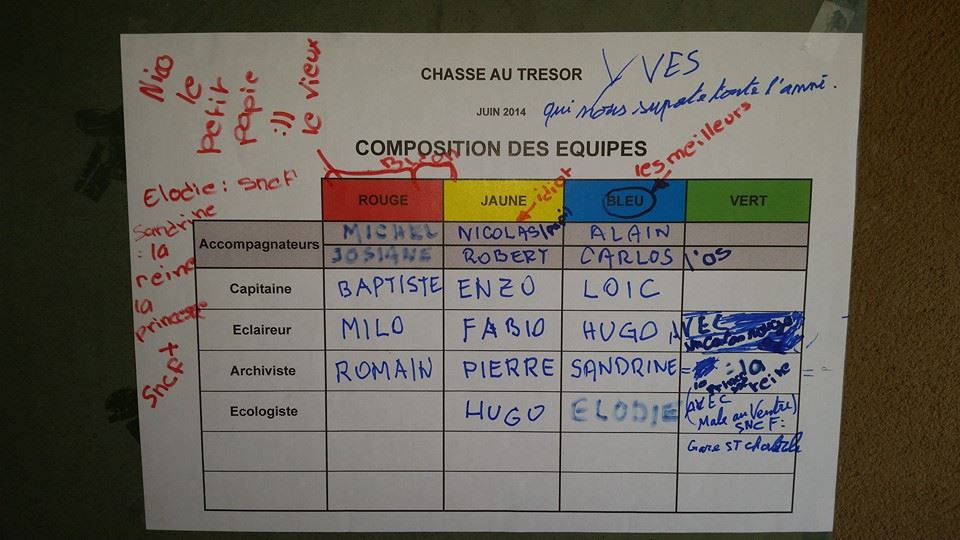 CHASSE AU TRESOR
YVES
JUIN 2014
qui nous suporte toute l'anné.
COMPOSITION DES EQUIPES
Nico
le
petit
papie
:))
le vieux
les meilleurs
idiot
Elodie: SNCF
Sandrine
: la
reine
la
princesse
SNCF +
ROUGE JAUNE BLEU VERT
Accompagnateurs MICHEL NICOLAS ALAIN
JOSIANE ROBERT CARLOS l'os
Capitaine BAPTISTE ENZO LOIC
Eclaireur MILO FABIO HUGO AVEC
Archiviste ROMAIN PIERRE SANDRINE = : la
reine
Ecologiste HUGO ELODIE (AVEC
Male au Ventre)
SNCF:
Gare ST